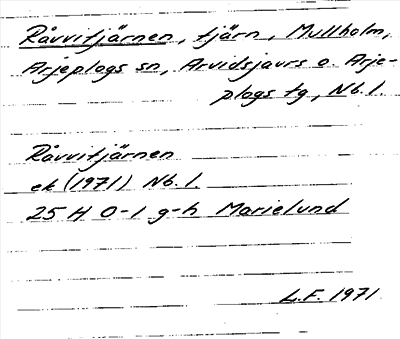 Råvvitjärnen, tjärn, Mullholm,
Arjeplogs sn, Arvidsjaurs o. Arje-
plogs tg, Nb. l.
Råvvitjärnen
ek (1971) Nb. l.
25 H 0-1 g-h Marielund
L.F. 1971